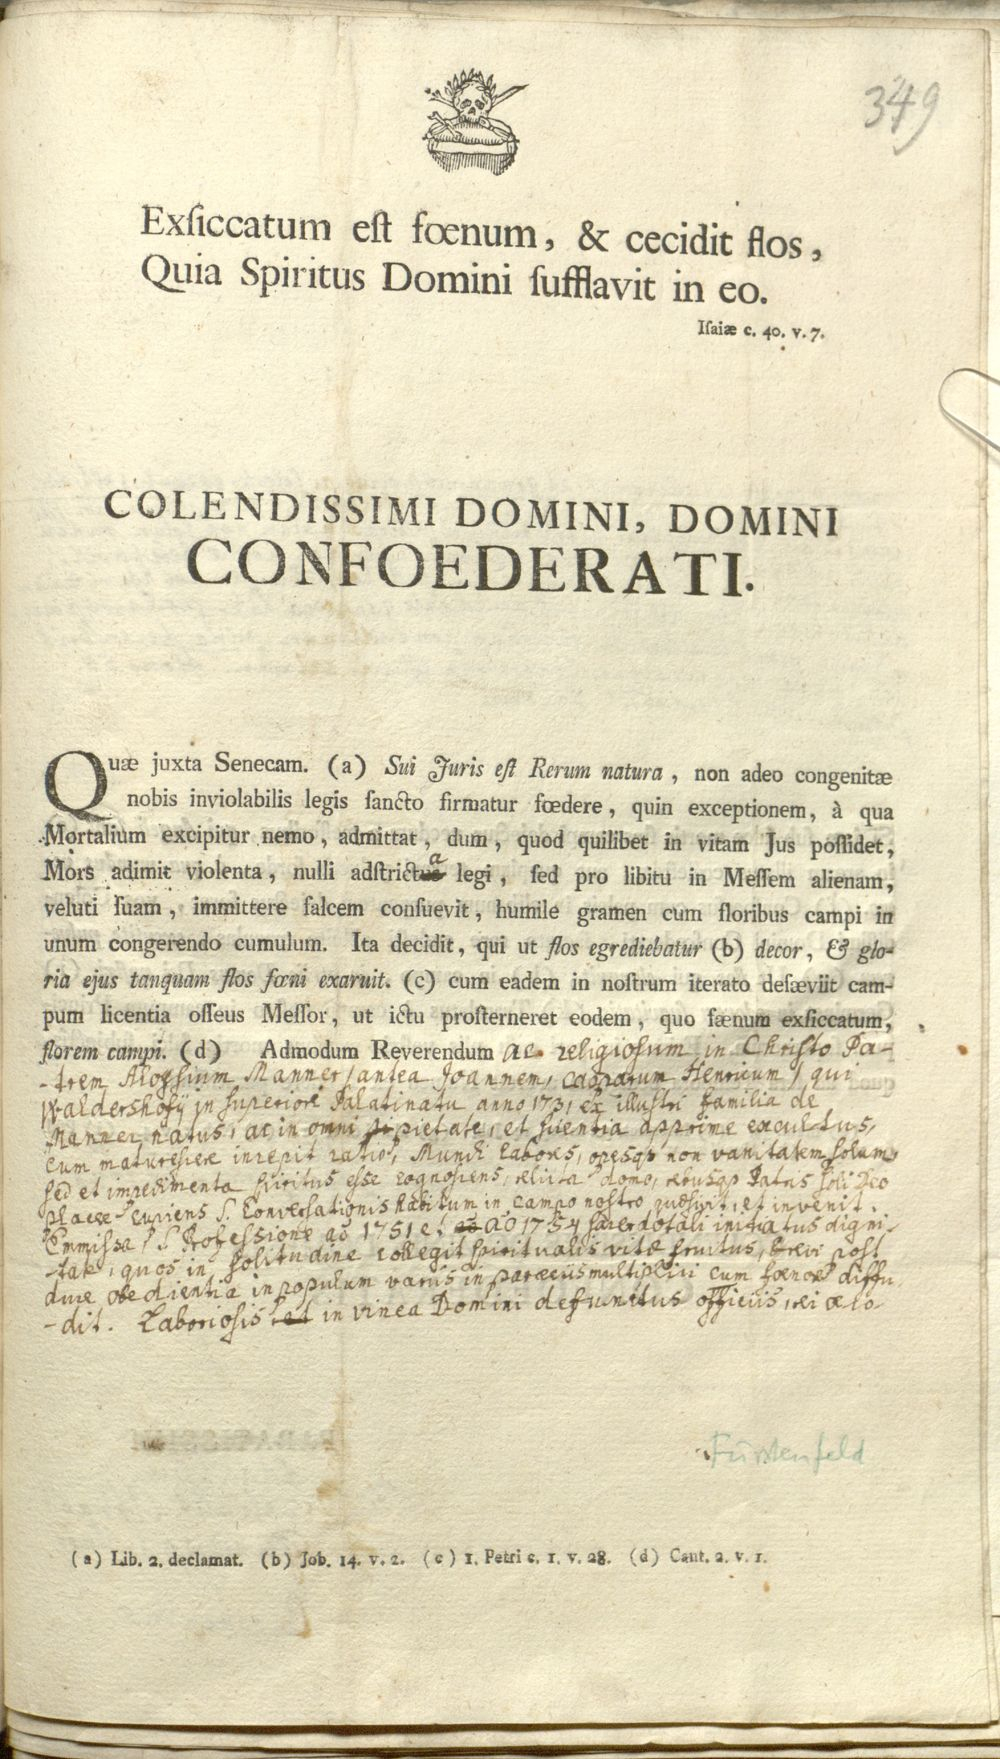 349
Exſiccatum eſt fœnum, & cecidit flos,
Quia Spiritus Domini ſufflavit in eo.
Iſaiæ c. 40. v. 7.
COLENDISSIMI DOMINI, DOMINI
CONFOEDERATI.
Quæ juxta Senecam. (a) Sui Juris eſt Rerum natura, non adeo congenitæ
nobis inviolabilis legis ſancto firmatur fœdere, quin exceptionem, à qua
Mortalium excipitur nemo, admittat, dum, quod quilibet in vitam Jus poſſidet,
Mors adimit violenta, nulli adſtricta legi, ſed pro libitu in Meſſem alienam,
veluti ſuam, immittere falcem conſuevit, humile gramen cum floribus campi in
unum congerendo cumulum. Ita decidit, qui ut flos egrediebatur (b) decor, & glo-
ria ejus tanquam flos fœni exaruit. (c) cum eadem in noſtrum iterato deſæviit cam-
pum licentia oſſeus Meſſor, ut ictu proſterneret eodem, quo fænum exſiccatum,
florem campi. (d) Admodum Reverendum ac religiosum in Christo Pa-
-trem Aloysium Manner, antea Joannem, Henricum, qui
Waldershofÿ in superiore Palatinatu anno 1731 ex illustri familia de
Manner natus, ac in omni pietate, et scientia apprime excultus,
cum maturescere inrepit ratio, Mundi labores, opesqs non vanitatem solum,
sed et impedimenta spiritus esse cognoscens, relicta domo, rebusqs Patris soli Deo
placere cupiens S. Conversationis habitum in campo nostro quæsivit, et invenit.
Emmissa S. Professione aô 1751 et aô 1754 sacerdotali initiatus digni-
-tate, quos in solitudine collegit spiritualis vitæ fructus, brevi post
duce obedientia in populum variis in parœciis multiplici cum fœnore diffu
-dit. Laboriosis in vinea Domini defunctus officiis,
Fürstenfeld
(a) Lib. 2. declamat. (b) Job. 14. v. 2. (c) 1. Petri c. 1. v. 28. (d) Cant. 2. v. 1.